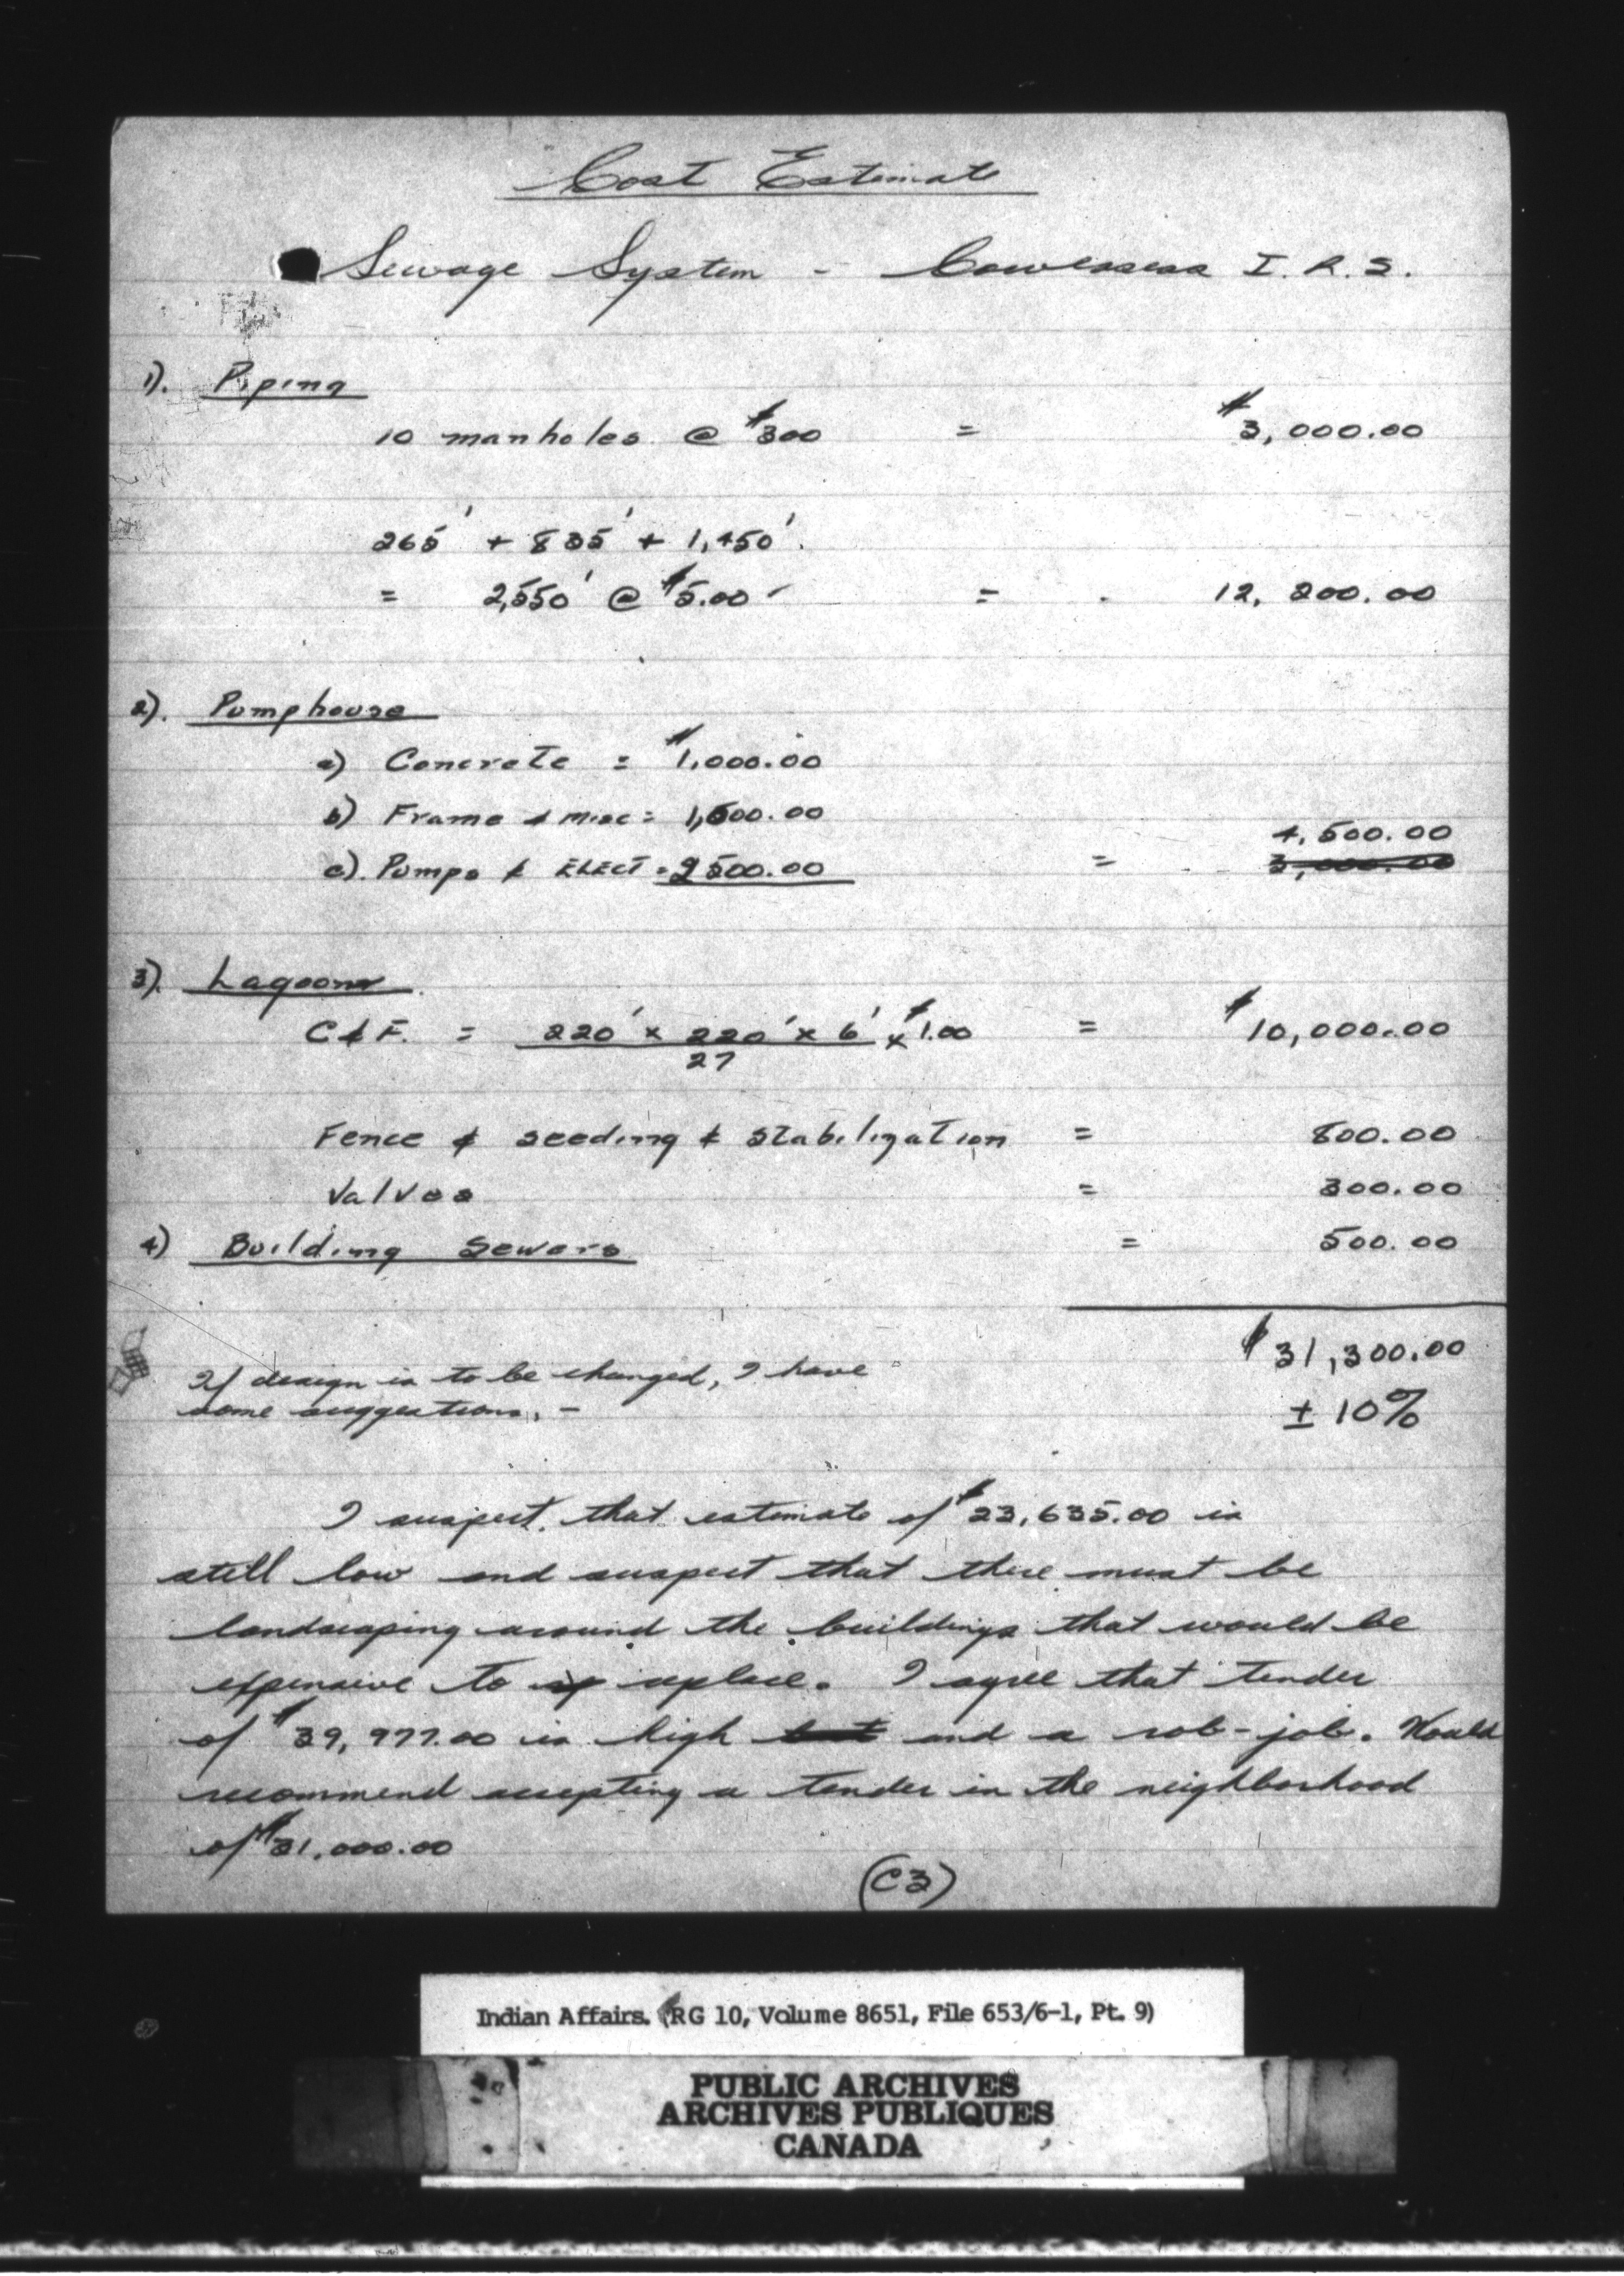 Cost Estimate
Sewage System - Cowessess I.R.S.
1). Piping
10 manholes @ $300 = $3,000.00
265' + 835' + 1,450'.
= 2,550' @ $5.00 = 12,200.00
2). Pumphouse
a) Concrete = $1,000.00
b) Frame & misc = 1,000.00
4,500.00
c). Pumps & ELECT = 2500.00 = 3,000.00
3). Lagoons
C & F. = 220' x 220' x 6' x $1.00 = $10,000.00
27
Fence & seeding & stabilization = 800.00
Valves = 300.00
4) Building Sewers = 500.00
$31,300.00
If design is to be changed, I have
some suggestions. -
± 10%
I suspect that estimate of $23,635.00 is
still low and suspect that there must be
landscaping around the buildings that would be
expensive to replace. I agree that tender
of $39,977.00 is high but and a rob-job. Would
recommend accepting a tender in the neighborhood
of $31,000.00
(C3)
Indian Affairs. (RG 10, Volume 8651, File 653/6-1, Pt. 9)
PUBLIC ARCHIVES
ARCHIVES PUBLIQUES
CANADA